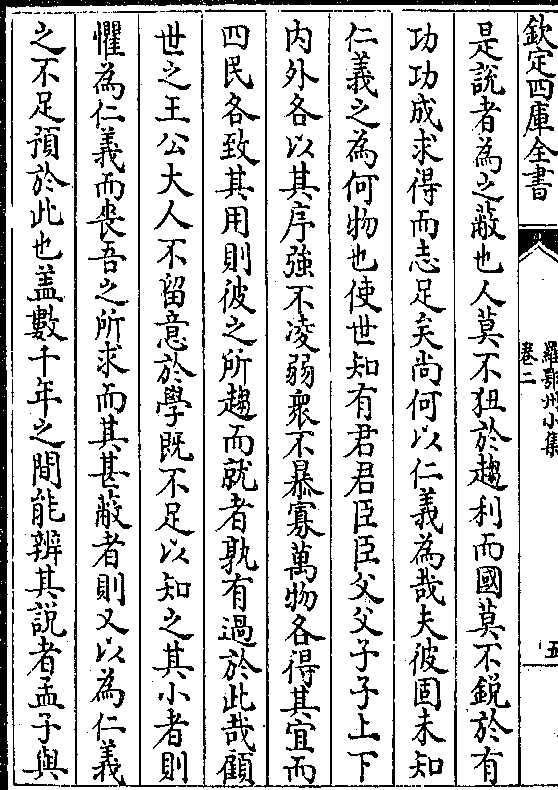 欽定四庫全書
羅鄂州小集
卷二
五
是說者為之蔽也人莫不狃於趨利而國莫不銳於有
功功成求得而志足矣尚何以仁義為哉夫彼固未知
仁義之為何物也使世知有君君臣臣父父子子上下
内外各以其序強不凌弱衆不暴寡萬物各得其宜而
四民各致其用則彼之所趨而就者孰有過於此哉顧
世之王公大人不留意於學既不足以知之其小者則
懼為仁義而喪吾之所求而其甚蔽者則又以為仁義
之不足預於此也盖數千年之間能辨其説者孟子與